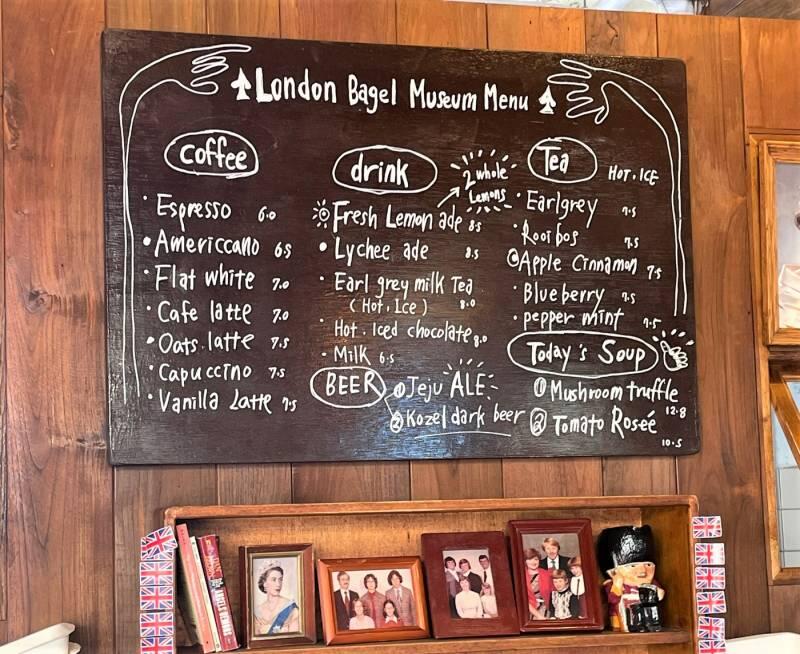 London Bagel Museum Menu
coffee
Espresso 6.0
Americcano 6.5
Flat white 7.0
Cafe latte 7.0
Oats latte 7.5
Capuccino 7.5
Vanilla Latte 7.5
drink
2 whole
Lemons
Fresh Lemon ade 8.5
Lychee ade 8.5
Earl grey milk Tea
(Hot, Ice) 8.0
Hot. Iced chocolate 8.0
Milk 6.5
BEER
① Jeju ALE
② Kozel dark beer
Tea HOT, ICE
Earlgrey 7.5
Rooibos 7.5
Apple Cinnamon 7.5
Blueberry 7.5
pepper mint 7.5
Today's Soup
① Mushroom truffle
12.8
② Tomato Roseé
10.5